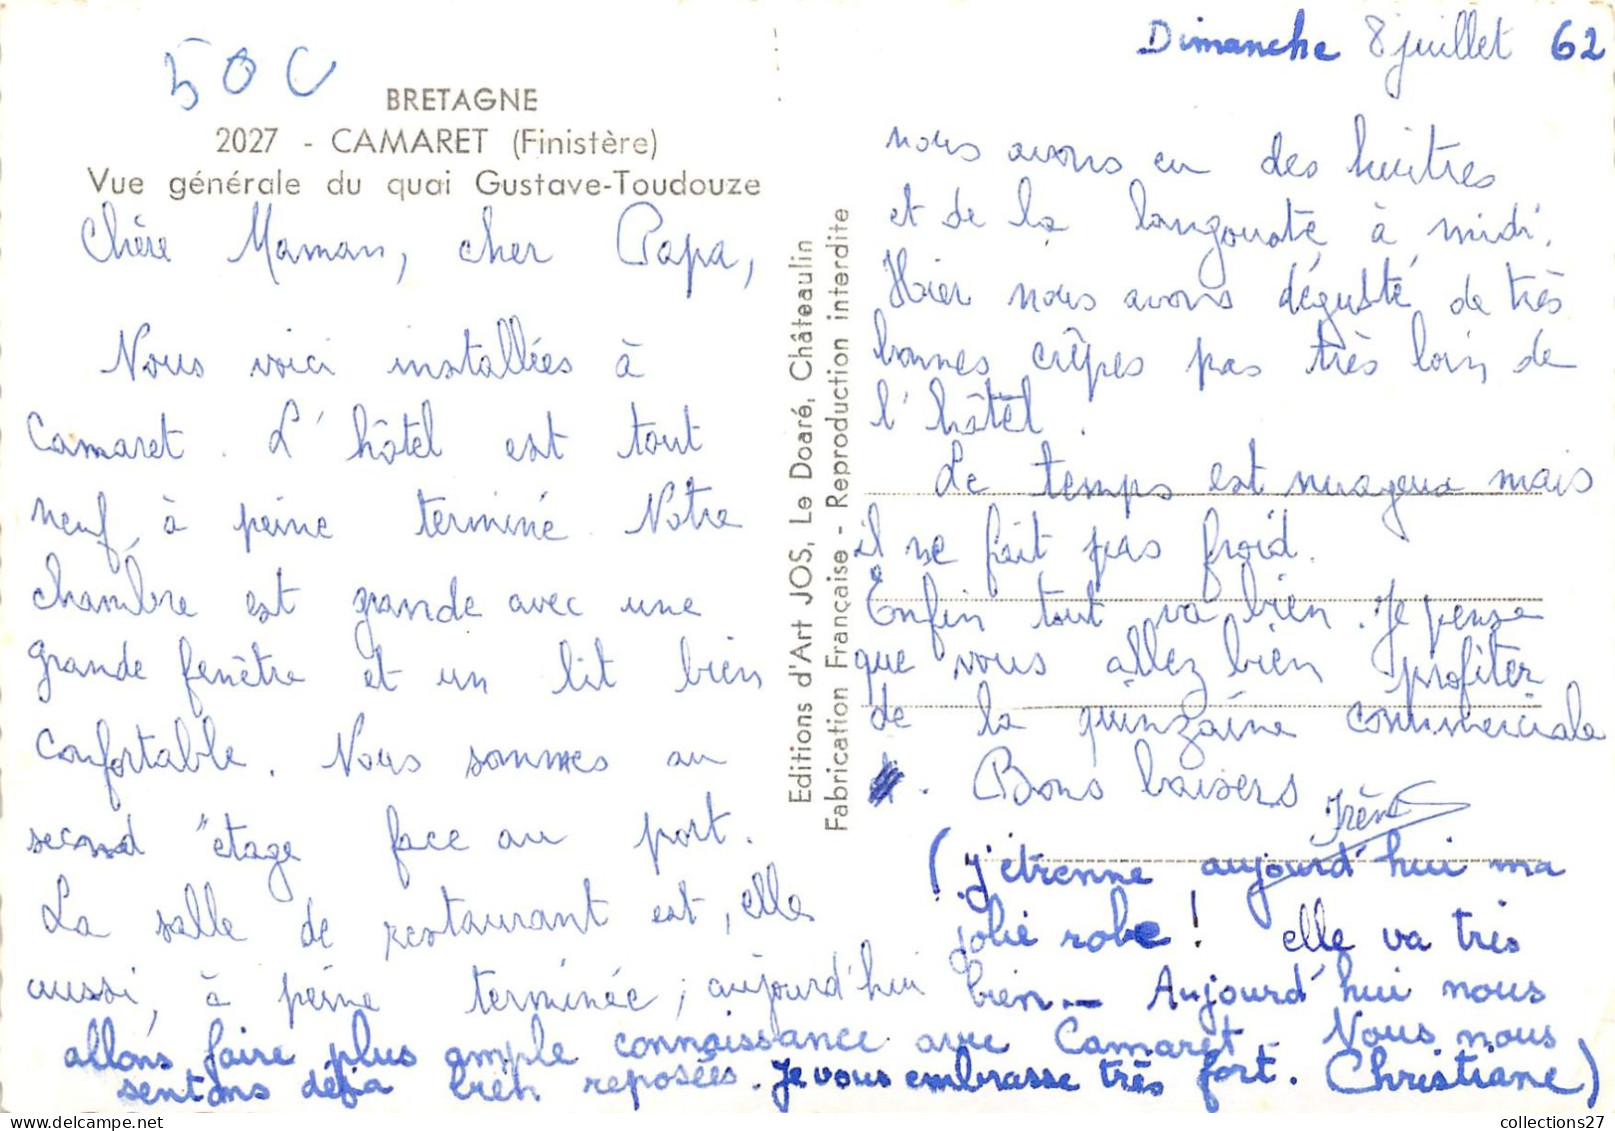 50C
BRETAGNE
2027 - CAMARET (Finistère)
Vue générale du quai Gustave-Toudouze
Chère Maman, cher Papa,
Nous voici installées à
Camaret. L'hôtel est tout
neuf, à peine terminé. Notre
chambre est grande avec une
grande fenêtre et un lit bien
confortable. Nous sommes au
second étage face au port.
La salle de restaurant est, elle
aussi, à peine terminée ; aujourd'hui
Editions d'Art JOS, Le Doaré, Châteaulin
Fabrication Française - Reproduction interdite
Dimanche 8 juillet 62
nous avons eu des huitres
et de la langouste à midi.
Hier nous avons dégusté de très
bonnes crêpes pas très loin de
l'hôtel.
Le temps est nuageux mais
il ne fait pas froid.
Enfin tout va bien. Je pense
que vous allez bien profiter
de la quinzaine commerciale
. Bons baisers Irène
(J'étrenne aujourd'hui ma
jolie robe ! elle va très
bien - Aujourd'hui nous
allons faire plus ample connaissance avec Camaret - Nous nous
sentons déja bien reposées. Je vous embrasse très fort. Christiane)
collections27